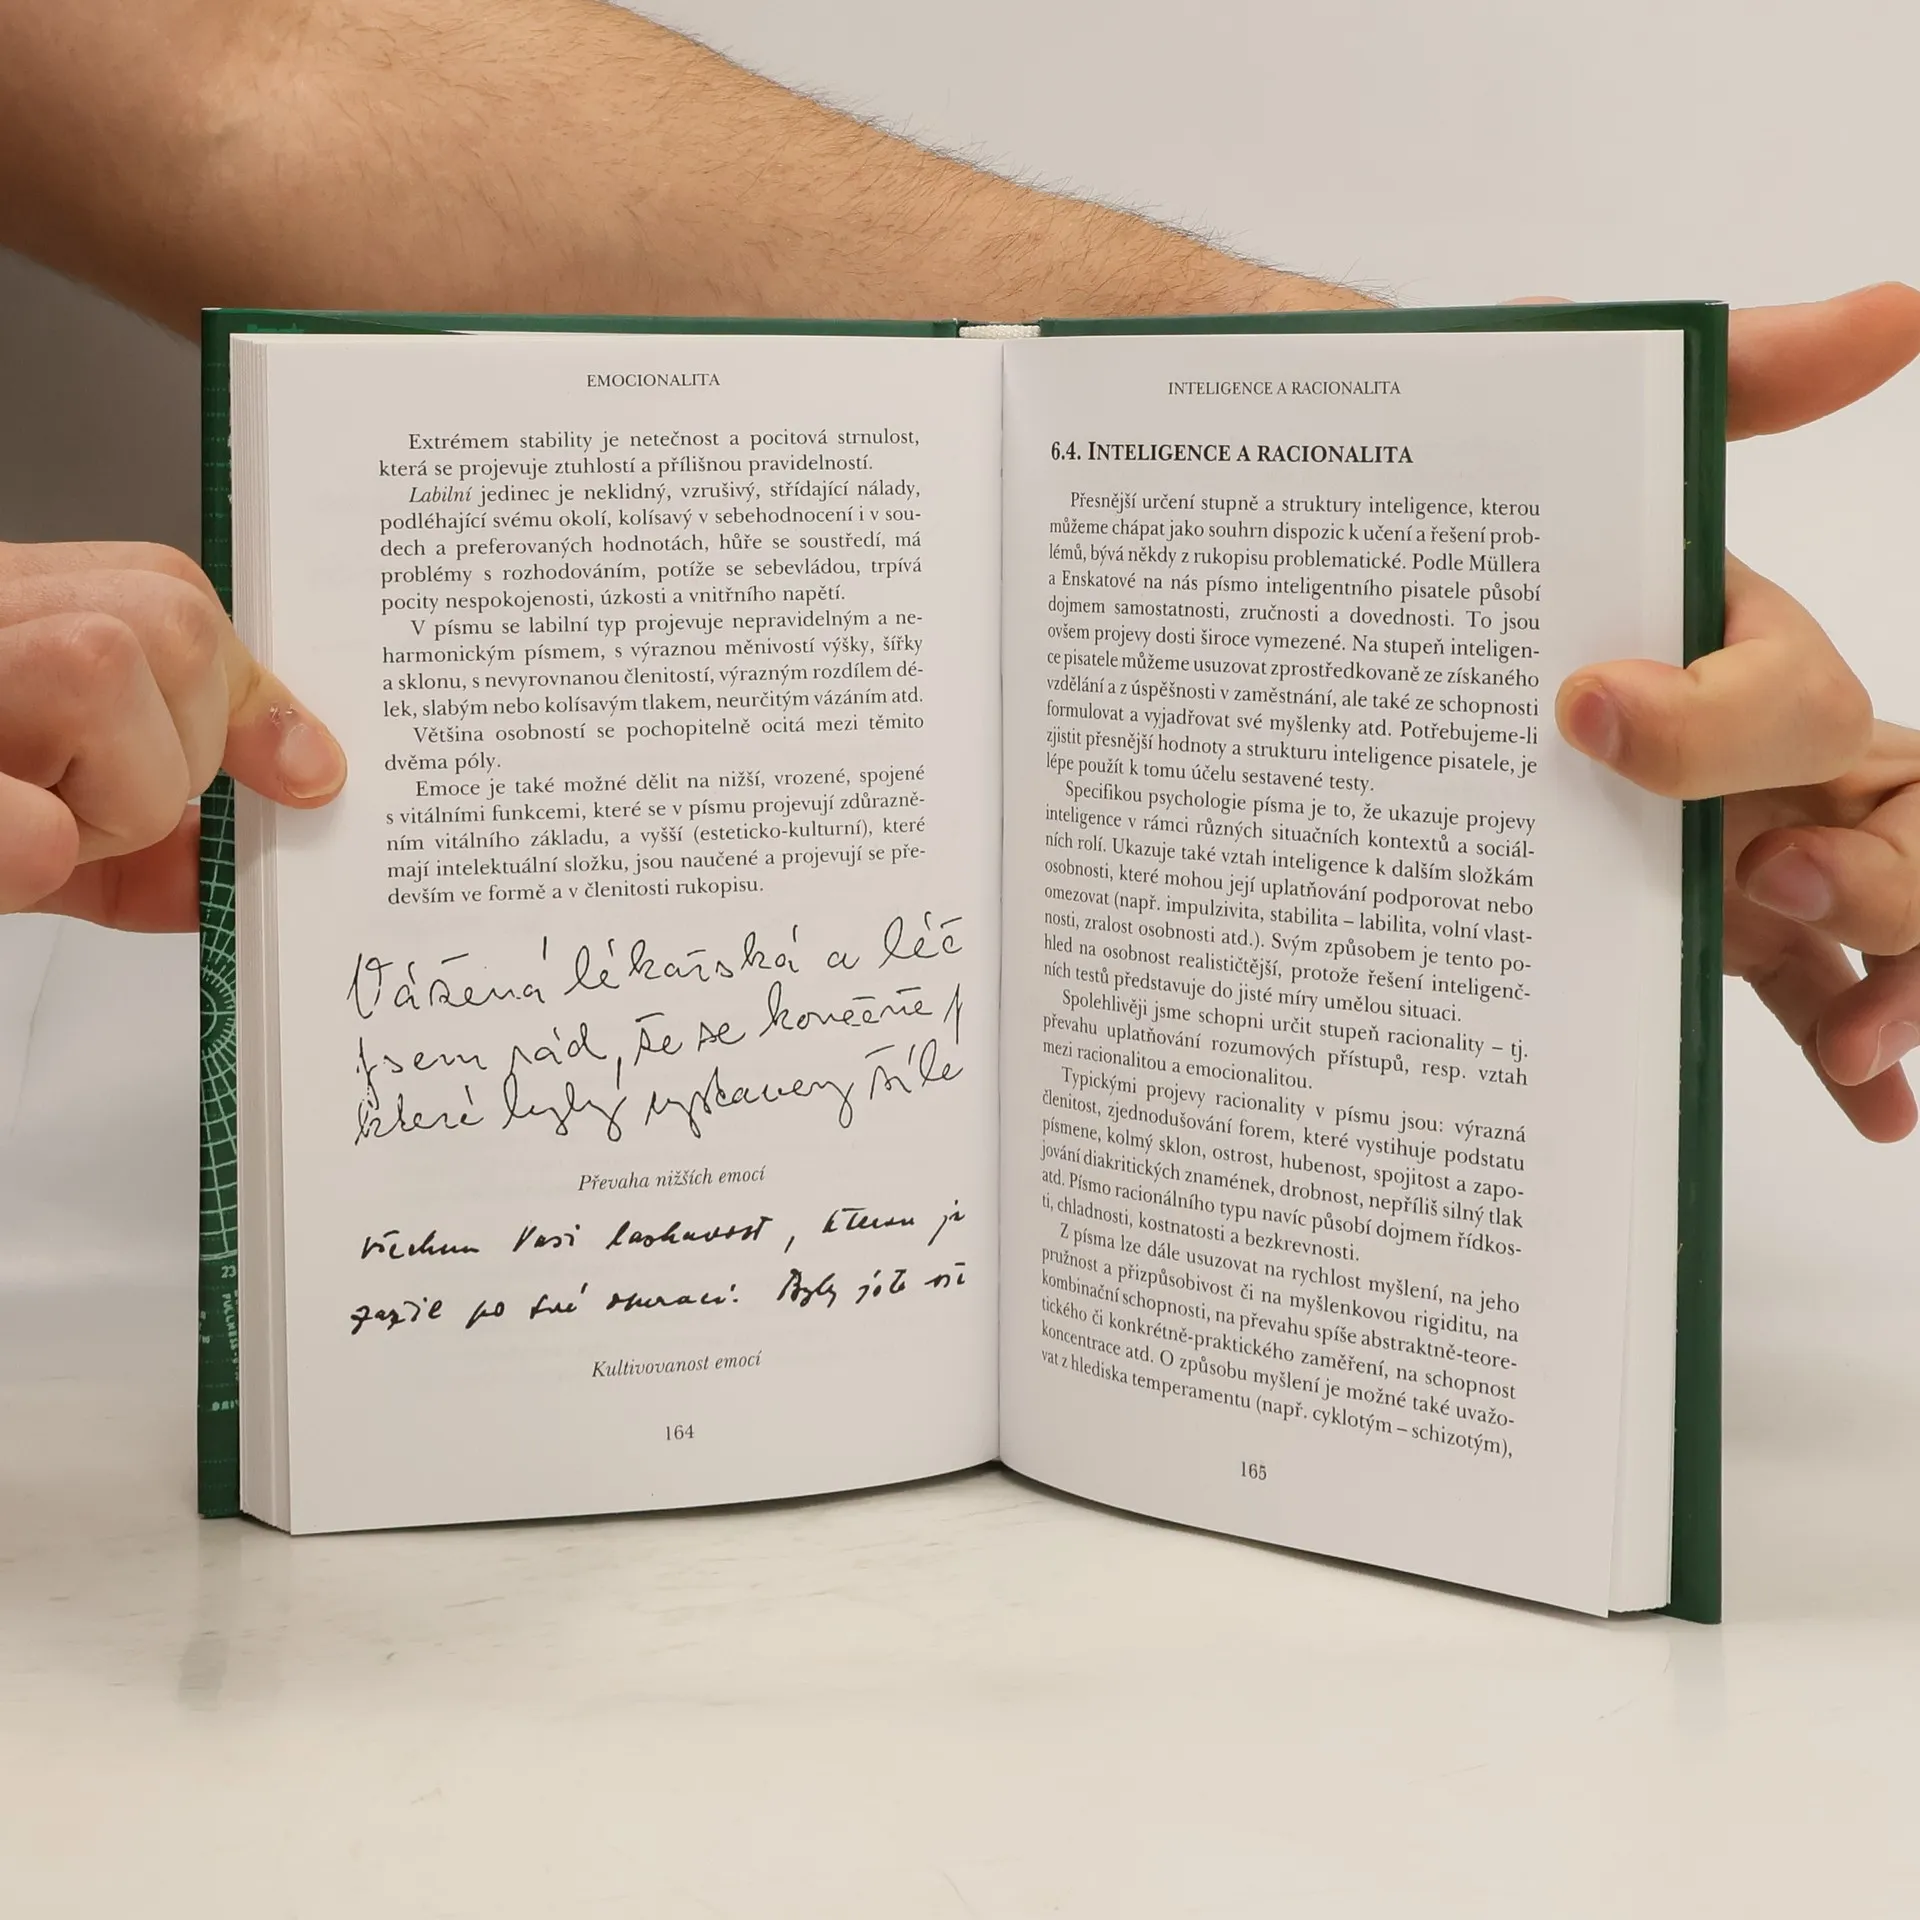 EMOCIONALITA
Extrémem stability je netečnost a pocitová strnulost,
která se projevuje ztuhlostí a přílišnou pravidelností.
Labilní jedinec je neklidný, vzrušivý, střídající nálady,
podléhající svému okolí, kolísavý v sebehodnocení i v sou-
dech a preferovaných hodnotách, hůře se soustředí, má
problémy s rozhodováním, potíže se sebevládou, trpívá
pocity nespokojenosti, úzkosti a vnitřního napětí.
V písmu se labilní typ projevuje nepravidelným a ne-
harmonickým písmem, s výraznou měnivostí výšky, šířky
a sklonu, s nevyrovnanou členitostí, výrazným rozdílem dé-
lek, slabým nebo kolísavým tlakem, neurčitým vázáním atd.
Většina osobností se pochopitelně ocitá mezi těmito
dvěma póly.
Emoce je také možné dělit na nižší, vrozené, spojené
s vitálními funkcemi, které se v písmu projevují zdůrazně-
ním vitálního základu, a vyšší (esteticko-kulturní), které
mají intelektuální složku, jsou naučené a projevují se pře-
devším ve formě a v členitosti rukopisu.
Vážená lékařská a léč
jsem rád, že se konečně p
které byly vystaveny šíle
Převaha nižších emocí
všechnu Vaši laskavost, kterou js
zažil po své operaci. Byly jste vši
Kultivovanost emocí
164
INTELIGENCE A RACIONALITA
6.4. INTELIGENCE A RACIONALITA
Přesnější určení stupně a struktury inteligence, kterou
můžeme chápat jako souhrn dispozic k učení a řešení prob-
lémů, bývá někdy z rukopisu problematické. Podle Müllera
a Enskatové na nás písmo inteligentního pisatele působí
dojmem samostatnosti, zručnosti a dovednosti. To jsou
ovšem projevy dosti široce vymezené. Na stupeň inteligen-
ce pisatele můžeme usuzovat zprostředkovaně ze získaného
vzdělání a z úspěšnosti v zaměstnání, ale také ze schopnosti
formulovat a vyjadřovat své myšlenky atd. Potřebujeme-li
zjistit přesnější hodnoty a strukturu inteligence pisatele, je
lépe použít k tomu účelu sestavené testy.
Specifikou psychologie písma je to, že ukazuje projevy
inteligence v rámci různých situačních kontextů a sociál-
ních rolí. Ukazuje také vztah inteligence k dalším složkám
osobnosti, které mohou její uplatňování podporovat nebo
omezovat (např. impulzivita, stabilita – labilita, volní vlast-
nosti, zralost osobnosti atd.). Svým způsobem je tento po-
hled na osobnost realističtější, protože řešení inteligenč-
ních testů představuje do jisté míry umělou situaci.
Spolehlivěji jsme schopni určit stupeň racionality – tj.
převahu uplatňování rozumových přístupů, resp. vztah
mezi racionalitou a emocionalitou.
Typickými projevy racionality v písmu jsou: výrazná
členitost, zjednodušování forem, které vystihuje podstatu
písmene, kolmý sklon, ostrost, hubenost, spojitost a zapo-
jování diakritických znamének, drobnost, nepříliš silný tlak
atd. Písmo racionálního typu navíc působí dojmem řídkos-
ti, chladnosti, kostnatosti a bezkrevnosti.
Z písma lze dále usuzovat na rychlost myšlení, na jeho
pružnost a přizpůsobivost či na myšlenkovou rigiditu, na
kombinační schopnosti, na převahu spíše abstraktně-teore-
tického či konkrétně-praktického zaměření, na schopnost
koncentrace atd. O způsobu myšlení je možné také uvažo-
vat z hlediska temperamentu (např. cyklotým – schizotým),
165